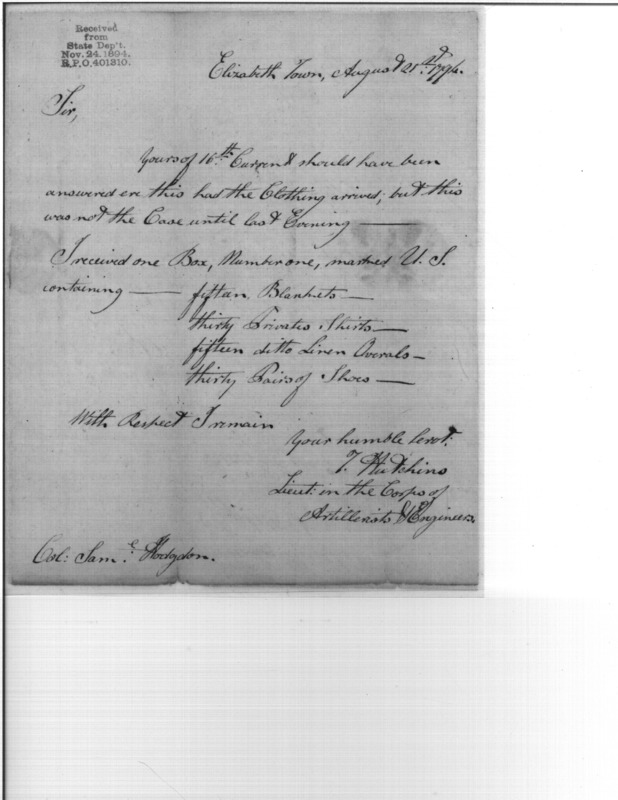 Received
from
State Dep't.
Nov. 24. 1894.
R.P.O. 401310.
Elizabeth Town, August 21st 1794.
Sir,
Yours of 16th Current should have been
answered ere this had the Clothing arrived; but this
was not the Case until last Evening —
I received one Box, Number one, marked U. S.
containing — fifteen Blankets —
thirty Privates Shirts —
fifteen ditto Linen Overals —
thirty Pairs of Shoes —
With Respect I remain
Your humble Servt:
T. Hutchins
Lieut: in the Corps of
Artillerists & Engineers.
Col: Saml: Hodgdon.